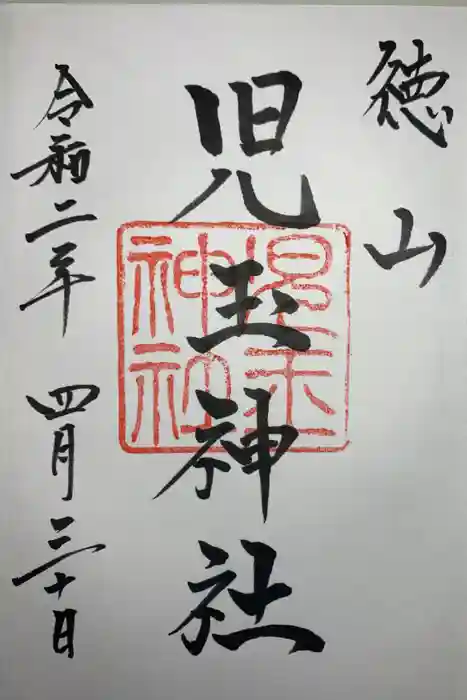 徳山
児玉神社
児玉神社
令和二年 四月三十日